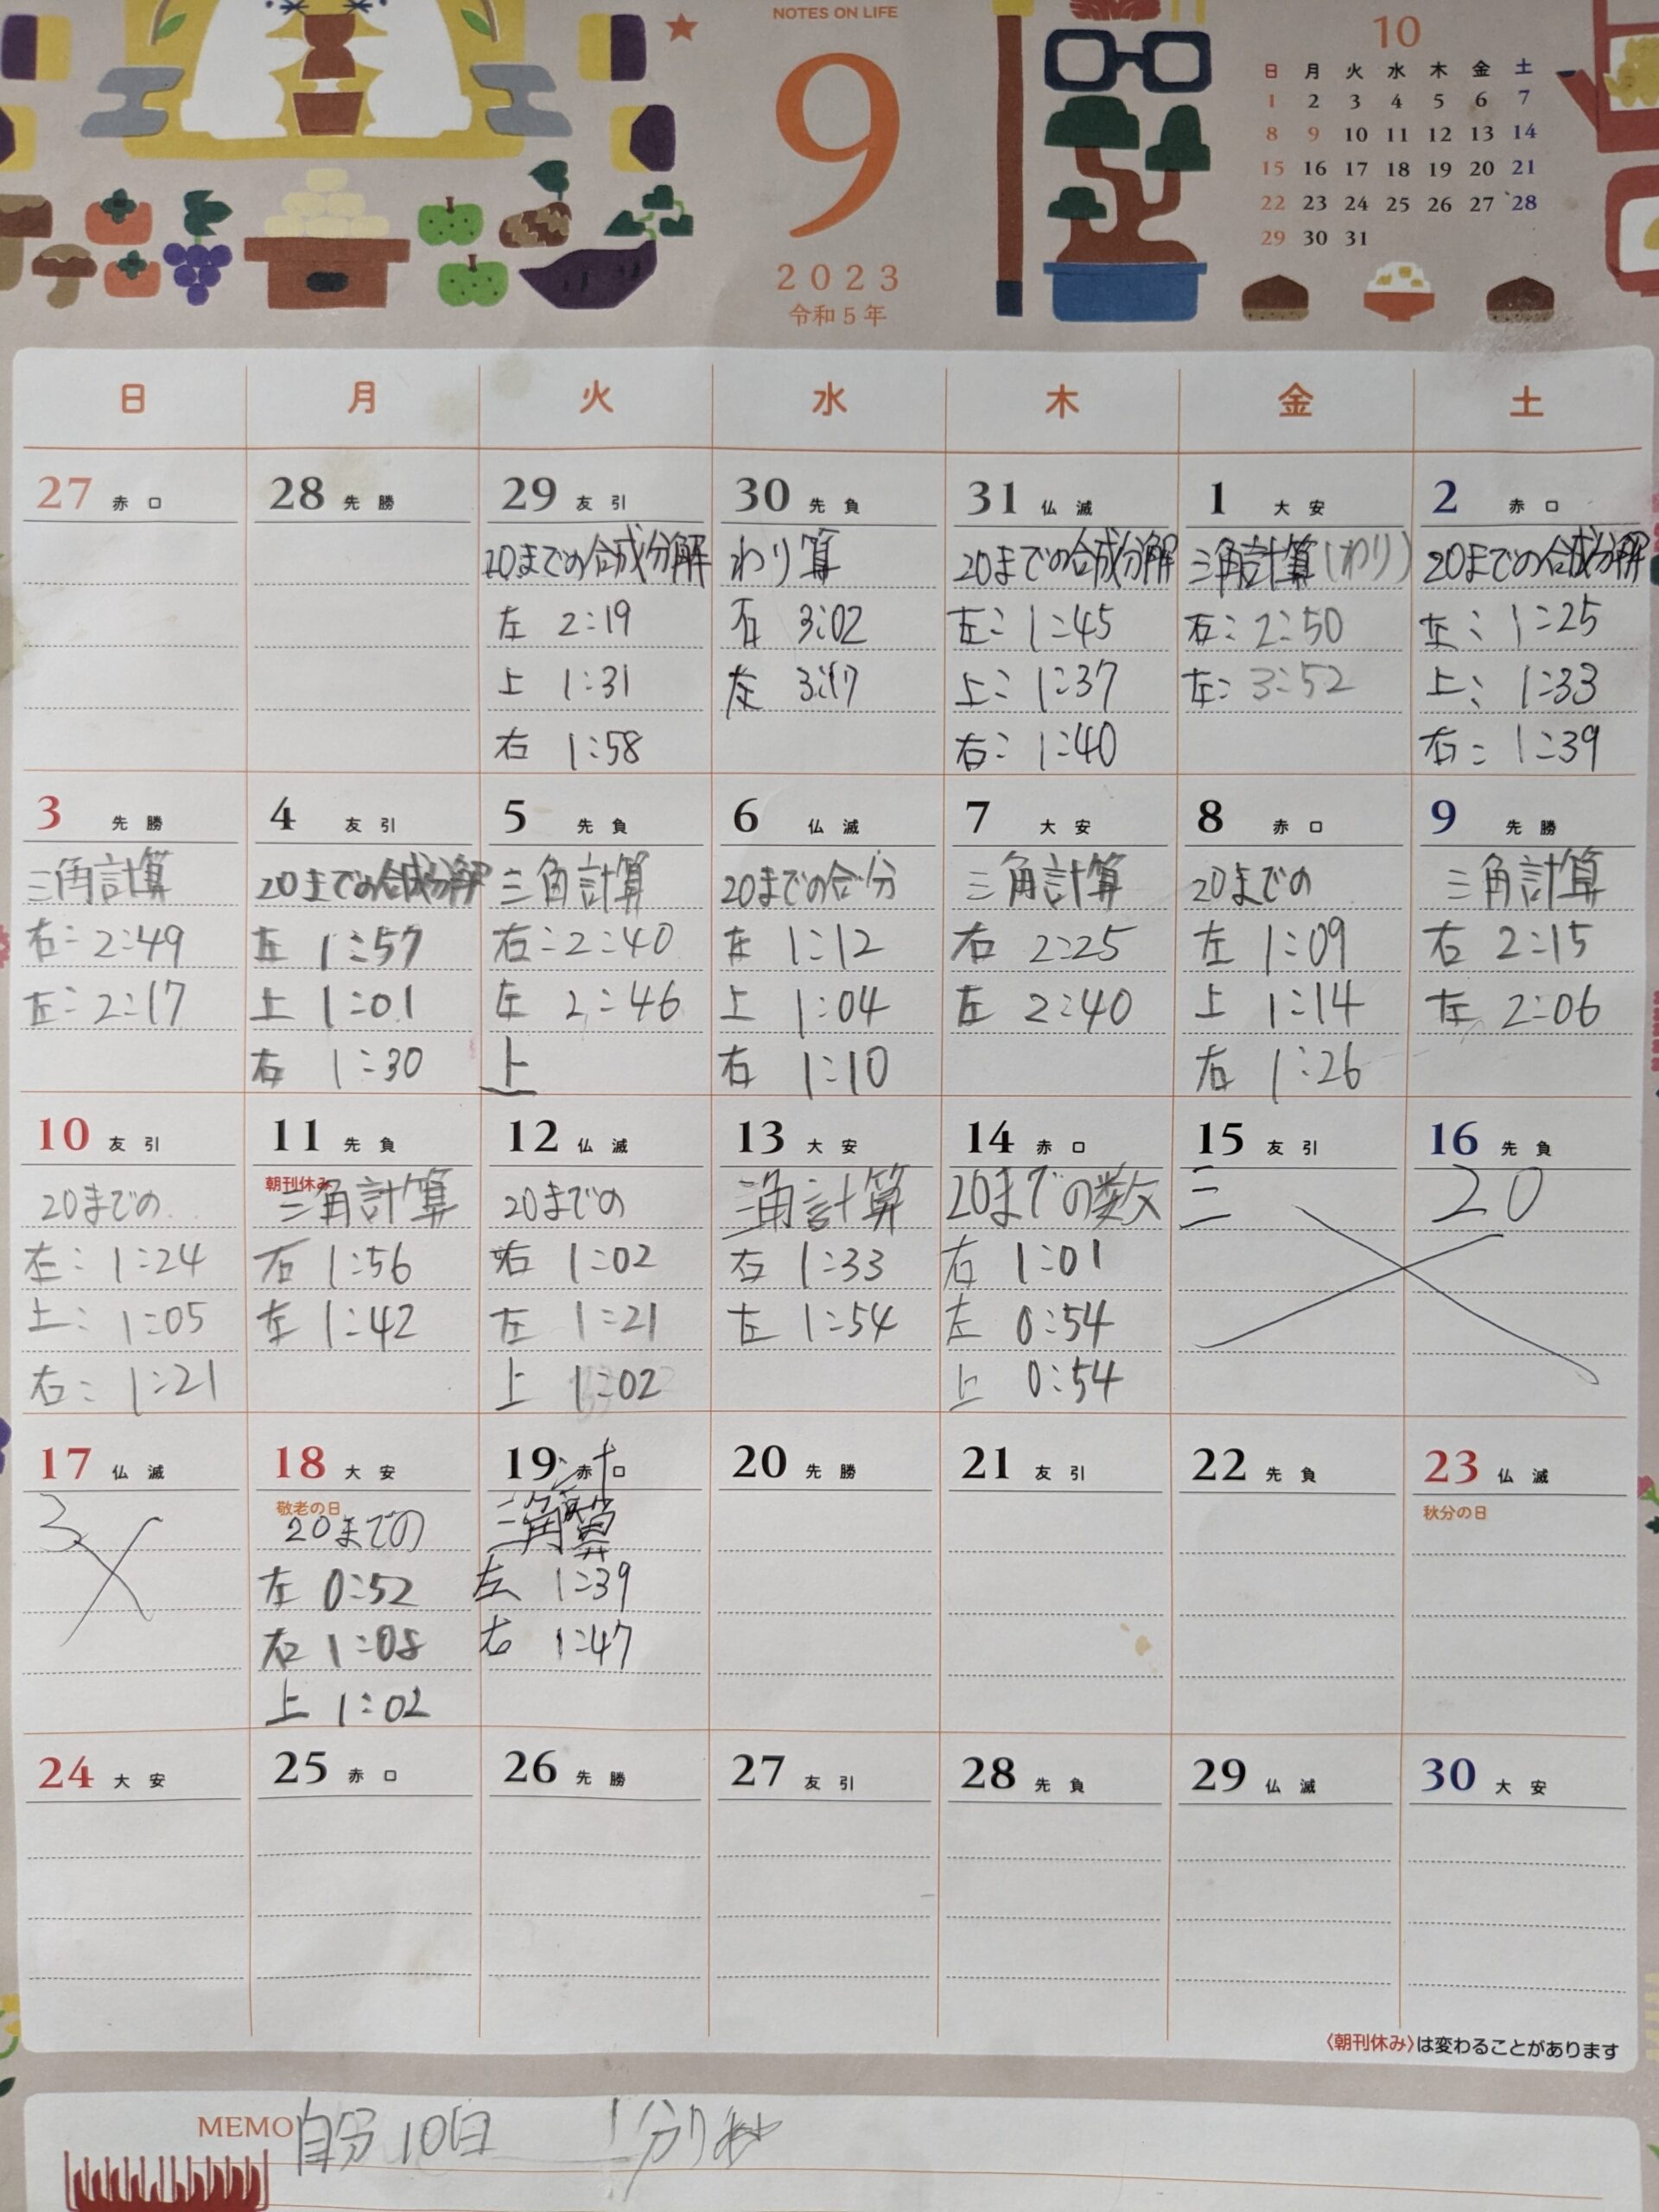 NOTES ON LIFE
9
2023
令和5年
10
日 月 火 水 木 金 土
1 2 3 4 5 6 7
8 9 10 11 12 13 14
15 16 17 18 19 20 21
22 23 24 25 26 27 28
29 30 31
日 月 火 水 木 金 土
27 赤口
28 先勝
29 友引
20までの合成分解
左 2:19
上 1:31
右 1:58
30 先負
わり算
右 3:02
左 3:17
31 仏滅
20までの合成分解
左: 1:45
上: 1:37
右: 1:40
1 大安
三角計算(わり)
右: 2:50
左: 3:52
2 赤口
20までの合成分解
左: 1:25
上: 1:33
右: 1:39
3 先勝
三角計算
右: 2:49
左: 2:17
4 友引
20までの合成分解
左 1:57
上 1:01
右 1:30
5 先負
三角計算
右:2:40
左 2:46
上
6 仏滅
20までの合分
左 1:12
上 1:04
右 1:10
7 大安
三角計算
右 2:25
左 2:40
8 赤口
20までの
左 1:09
上 1:14
右 1:26
9 先勝
三角計算
右 2:15
左 2:06
10 友引
20までの
左: 1:24
上: 1:05
右: 1:21
11 先負
朝刊休み
三角計算
右 1:56
左 1:42
12 仏滅
20までの
右 1:02
左 1:21
上 1:02
13 大安
三角計算
右 1:33
左 1:54
14 赤口
20までの数
右 1:01
左 0:54
上 0:54
15 友引
三
16 先負
20
17 仏滅
18 大安
敬老の日
20までの
左 0:52
右 1:08
上 1:02
19 赤口
三角算
左 1:39
右 1:47
20 先勝
21 友引
22 先負
23 仏滅
秋分の日
24 大安
25 赤口
26 先勝
27 友引
28 先負
29 仏滅
30 大安
〈朝刊休み〉は変わることがあります
MEMO 自分10日 1分